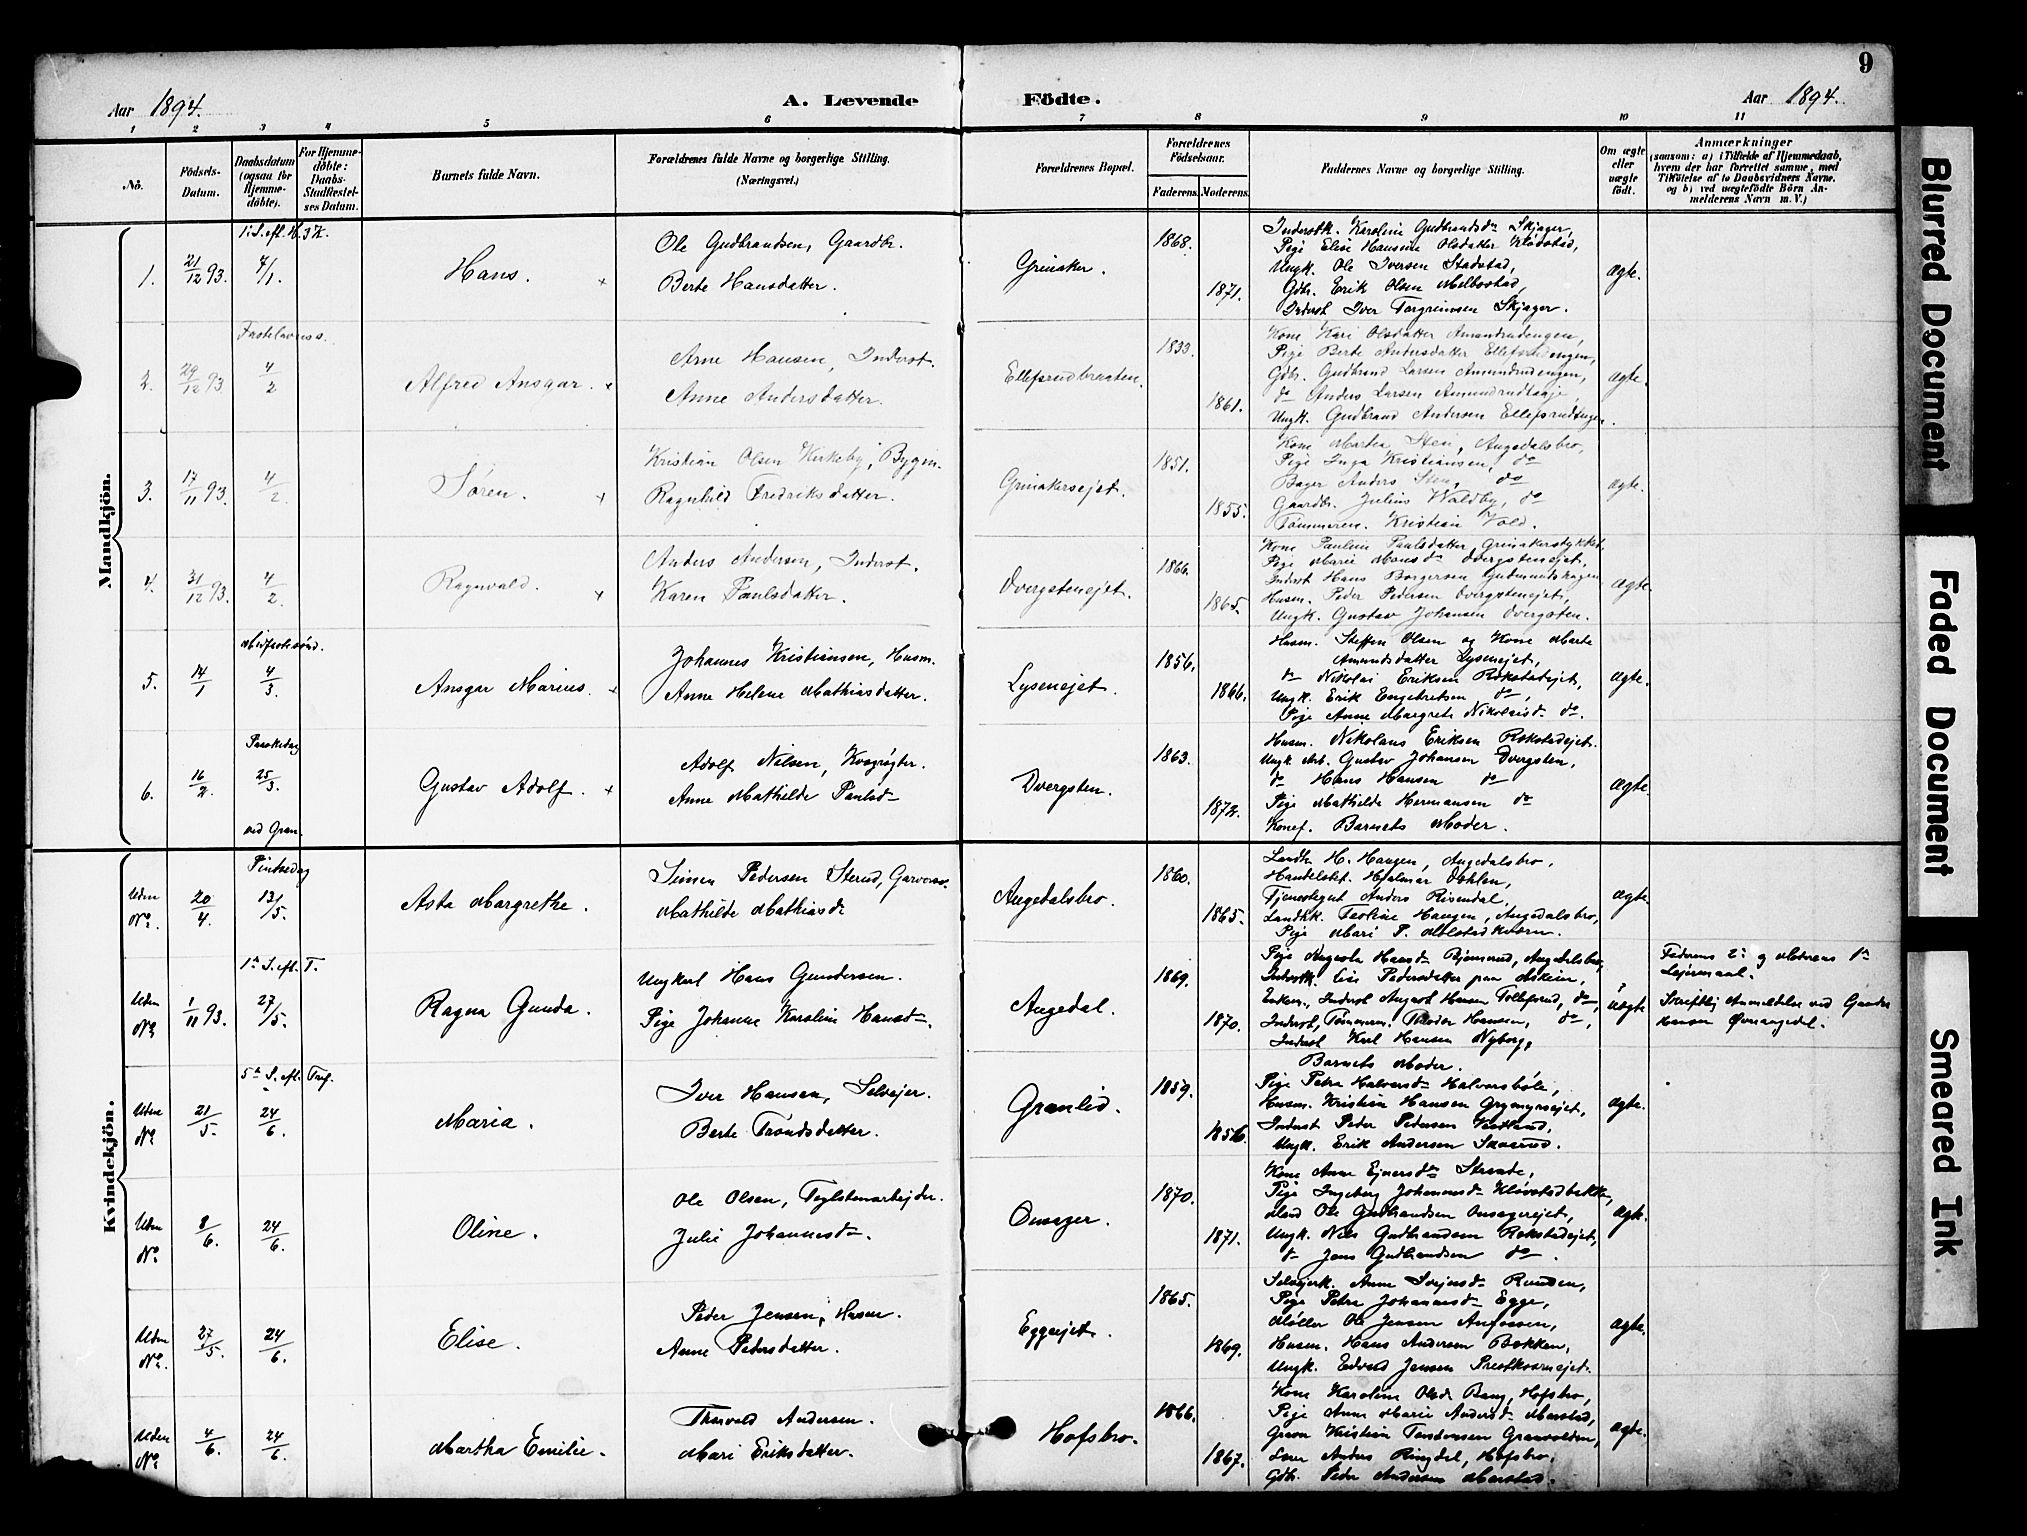 9
Aar 1894.
A. Levende Födte.
Aar 1894.
1 2 3 4 5 6 7 8 9 10 11
No.
Födsels-Datum.
Daabsdatum (ogsaa for Hjemme-döbte).
For Hjemme-döbte: Daabs-Stadfæstel-ses Datum.
Barnets fulde Navn.
Forældrenes fulde Navne og borgerlige Stilling. (Næringsvei.)
Forældrenes Bopæl.
Forældrenes Födselsaar.
Faderens. Moderens.
Faddernes Navne og borgerlige Stilling.
Om ægte eller uægte födt.
Anmærkninger
(saasom: a) i Tilfælde af Hjemmedaab, hvem der har forrettet samme, med Tilföielse af to Daabsvidners Navne, og b) ved uægtefödte Börn An-melderens Navn m. V.)
Mandkjön.
1. 21/12 93. 7/1. Hans.
Ole Gudbrandsen, Gaardbr.
Berte Hansdatter.
Grinaker.
1868. 1871.
Inderstk. Karoline Gudbrandsdr Skjager,
Pige Elise Hansine Olsdatter Klæstad,
Ungk. Ole Iversen Stadstad,
Gdbr. Erik Olsen Melbostad,
Inderst Iver Torgrimsen Skjager.
ægte.
Fastelavnss.
2. 29/12 93. 4/2 Alfred Ansgar.
Arne Hansen, Inderst.
Anne Andersdatter.
Ellefsrudbraaten.
1833. 1861.
Kone Kari Olsdatter Amundrudengen,
Pige Berte Andersdatter Ellefsrudengen,
Gdbr. Gudbrand Larsen Amundrudengen,
do Anders Larsen
Ungk. Gudbrand Andersen Ellefsrudengen.
ægte.
3. 17/11 93. 4/2 Søren.
Kristian Olsen Kirkeby, Bygm.
Ragnhild Fredriksdatter.
Grinakersejet.
1851. 1855.
Kone Martea Steen, Augedalsbro,
Pige Inga Kristiansen, do
Bager Anders Steen, do
Gaardbr. Julius Waldby, do
Tømmerm. Kristian Vold.
ægte.
4. 31/12 93. 4/2. Ragnvald.
Anders Andersen, Inderst.
Karen Paulsdatter.
Dvergstenejet.
1866. 1865.
Kone Pauline Paulsdatter, Grinakerstykket,
Pige Marie Hansdr Dvergstenejet,
Inderst Hans Borgersen Gudmundshagen
Husm. Peder Pedersen Dvergstenejet,
Ungk. Gustav Johansen Dvergsten.
ægte.
Midfastesønd.
5. 14/1 4/3. Ansgar Marius.
Johannes Kristiansen, Husm.
Anne Helene Mathiasdatter.
Lysenejet.
1856. 1866.
Husm. Steffen Olsen og Kone Marte
Amundsdatter Lysenejet,
do Nikolai Eriksen Rækstadejet,
Ungk. Erik Engebretsen do,
Pige Anne Margrete Nikolaisd. do.
ægte.
Paaskedag
6. 16/2. 25/3. Gustav Adolf.
ved Gran.
Adolf Nilsen, Kvægrøgter.
Anne Mathilde Paulsdr
Dvergsten.
1863. 1872.
Husm. Nikolaus Eriksen Rækstadejet.
Ungk. Arb. Gustav Johansen Dvergsten,
do Hans Hansen do
Pige Mathilde Hermansen do
Konef. Barnets Moder.
ægte.
Kvindekjön.
Pintsedag
Uden No. 20/4. 13/5. Asta Margrethe.
Simen Pedersen Sterud, Garver.
Mathilde Mathiasdr
Augedalsbro.
1860. 1865.
Landh. H. Haugen, Augedalsbro.
Handelsbet. Hjalmar Dahlen,
Tjenestegut Anders Risendal,
Landhk. Karoline Haugen, Augedalsbro,
Pige Mari P. Molstadkværn.
ægte.
1ste S. eft. T.
Uden No. 1/11 93. 27/5. Ragna Gunda.
Ungkarl Hans Gundersen.
Pige Johanne Karoline Hansdr.
Augedal.
1869. 1870.
Inderstk. Lise Pedersdatter
Inderst, Tømmerm. Theodor Hansen, do,
Inderst Karl Hansen Nyborg,
Barnets Moder.
uægte
Faderens 2: og Moderens 1ste
Lejermaal.
Skriftlig Anmeldelse ved Gunder
Hansen Øvreaugedal.
5te S. eft. Tref.
Uden No. 21/5. 24/6. Maria.
Iver Hansen, Selvejer.
Berte Trondsdatter.
Granlid.
1859. 1856.
Pige Petra Halvorsdr Halvorsbøle,
Husm. Kristian Hansen Grymyrsejet,
Inderst Peder Pedersen
Ungk. Erik Andersen
ægte.
Uden No. 8/6. 24/6. Oline.
Ole Olsen, Teglstenarbejder.
Julie Johannesdr.
Onsager.
1870. 1871.
Kone Anne Ejnersdr Strande,
Pige Ingeborg Johannesdr Kløvstadbakken,
Ole Gudbrandsen Onsagerejet,
Ungk. Nils Gudbrandsen Rækstadejet,
do Jens Gudbrandsen do.
ægte.
Uden No. 27/5. 24/6. Elise.
Peder Jensen, Husm.
Anne Pedersdatter.
Eggeejet.
1865. 1869.
Selvejerk. Anne
Pige Petra Johannesdr Egge,
Møller Ole Jensen
Husm. Hans Andersen Bakken,
Ungk. Edvard Jensen
ægte.
Uden No. 4/6. 24/6. Martha Emilie.
Thorvald Andersen.
Mari Eriksdatter.
Hofsbro.
1866. 1867.
Kone Karoline Olsdr Bang, Hofsbro,
Pige Anne Marie Andersdr Morstad,
Kristian Granvolden,
Anders Ringdal, Hofsbro.
Gdbr. Peder Andersen Morstad.
ægte.
Blurred Document
Faded Document
Smeared Ink